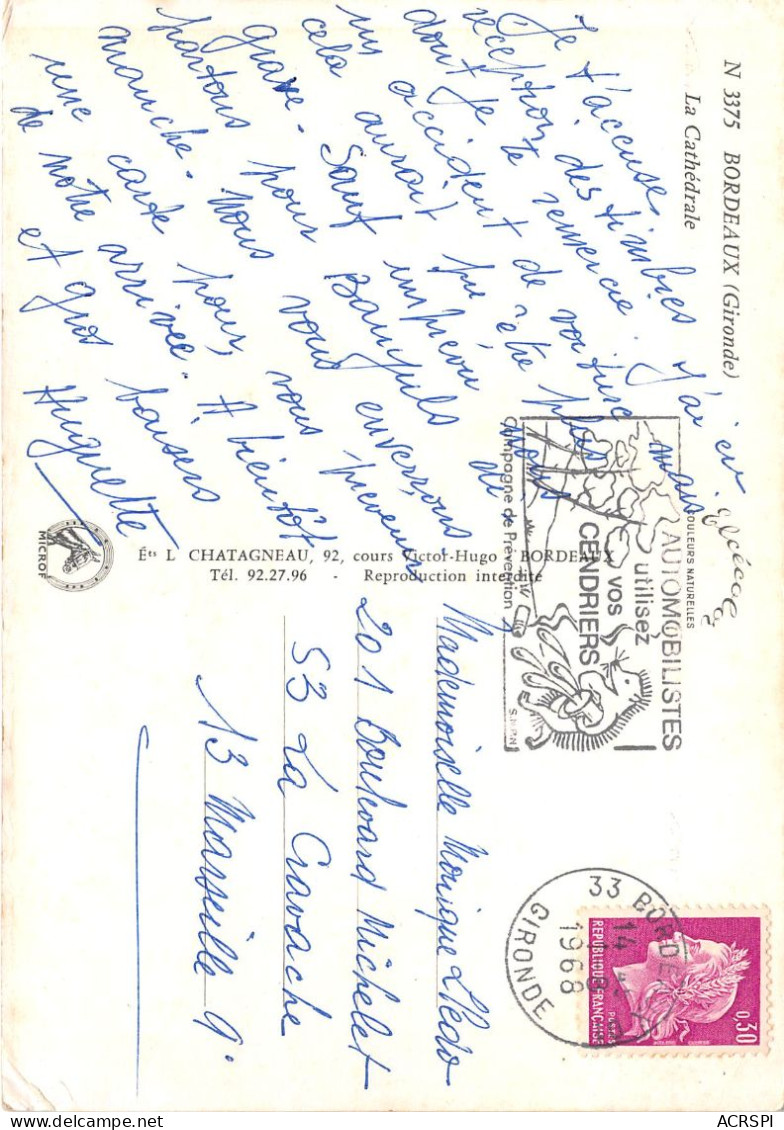 N 3375 BORDEAUX (Gironde)
La Cathédrale
Je t'accuse
réception des timbres
dont je te remercie. J'ai eu
un accident de voiture mais
cela aurait pu être plus
grave. Sauf imprévu nous
partons pour Banyuls di-
manche. Nous vous enverrons
une carte pour vous prévenir
de notre arrivée. A bientôt
et gros baisers
Huguette
MICROF
Éts L CHATAGNEAU, 92, cours Victor-Hugo - BORDEAUX
Tél. 92.27.96 - Reproduction interdite
COULEURS NATURELLES
AUTOMOBILISTES
utilisez
vos
CENDRIERS
Campagne de Prévention
Mademoiselle Monique
201 Boulevard Michelet
53 La Cravache
13 Marseille 9e
33 BORDEAUX
14
1968
GIRONDE
REPUBLIQUE FRANÇAISE
POSTES
0,30
ACRSPI